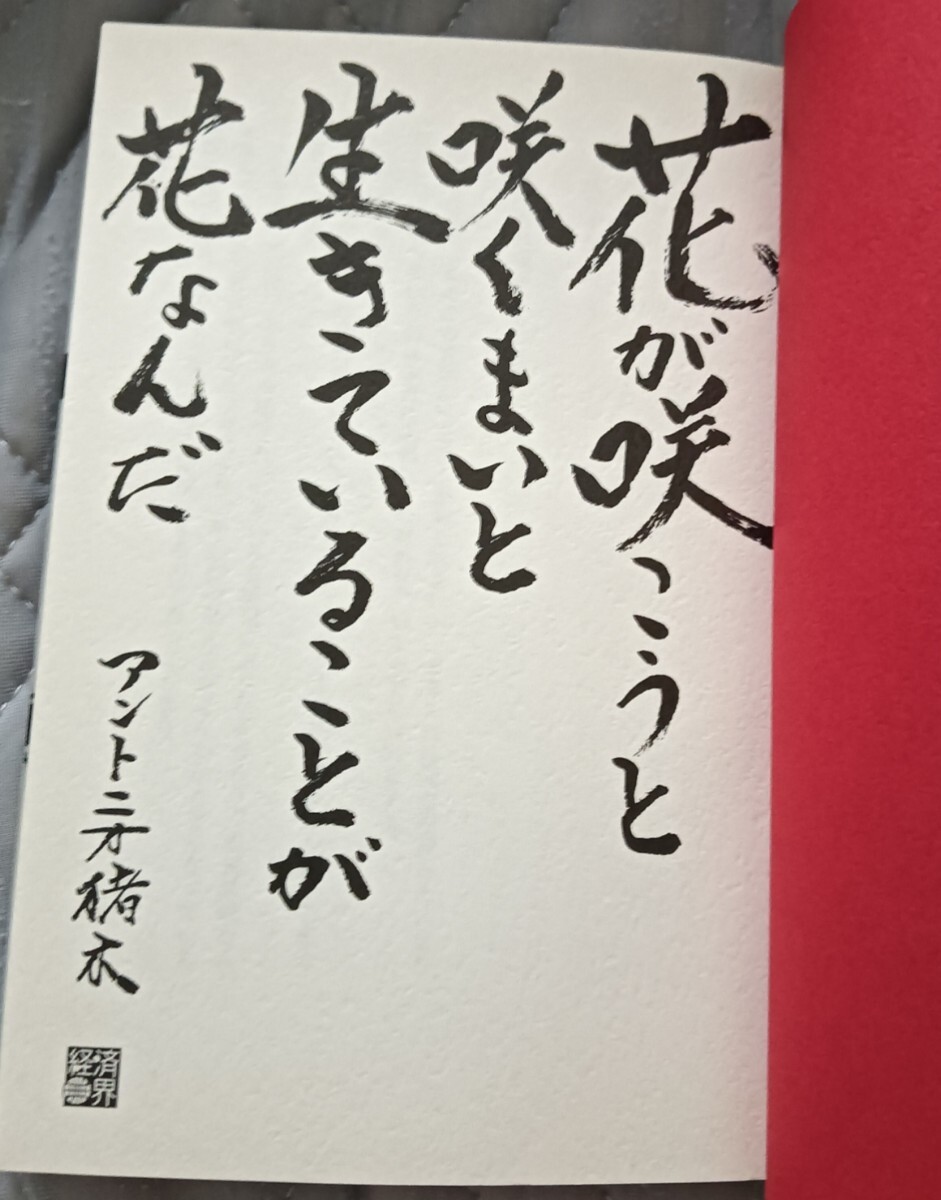 花が咲こうと
咲くまいと
生きていることが
花なんだ
アントニオ猪木
経済界